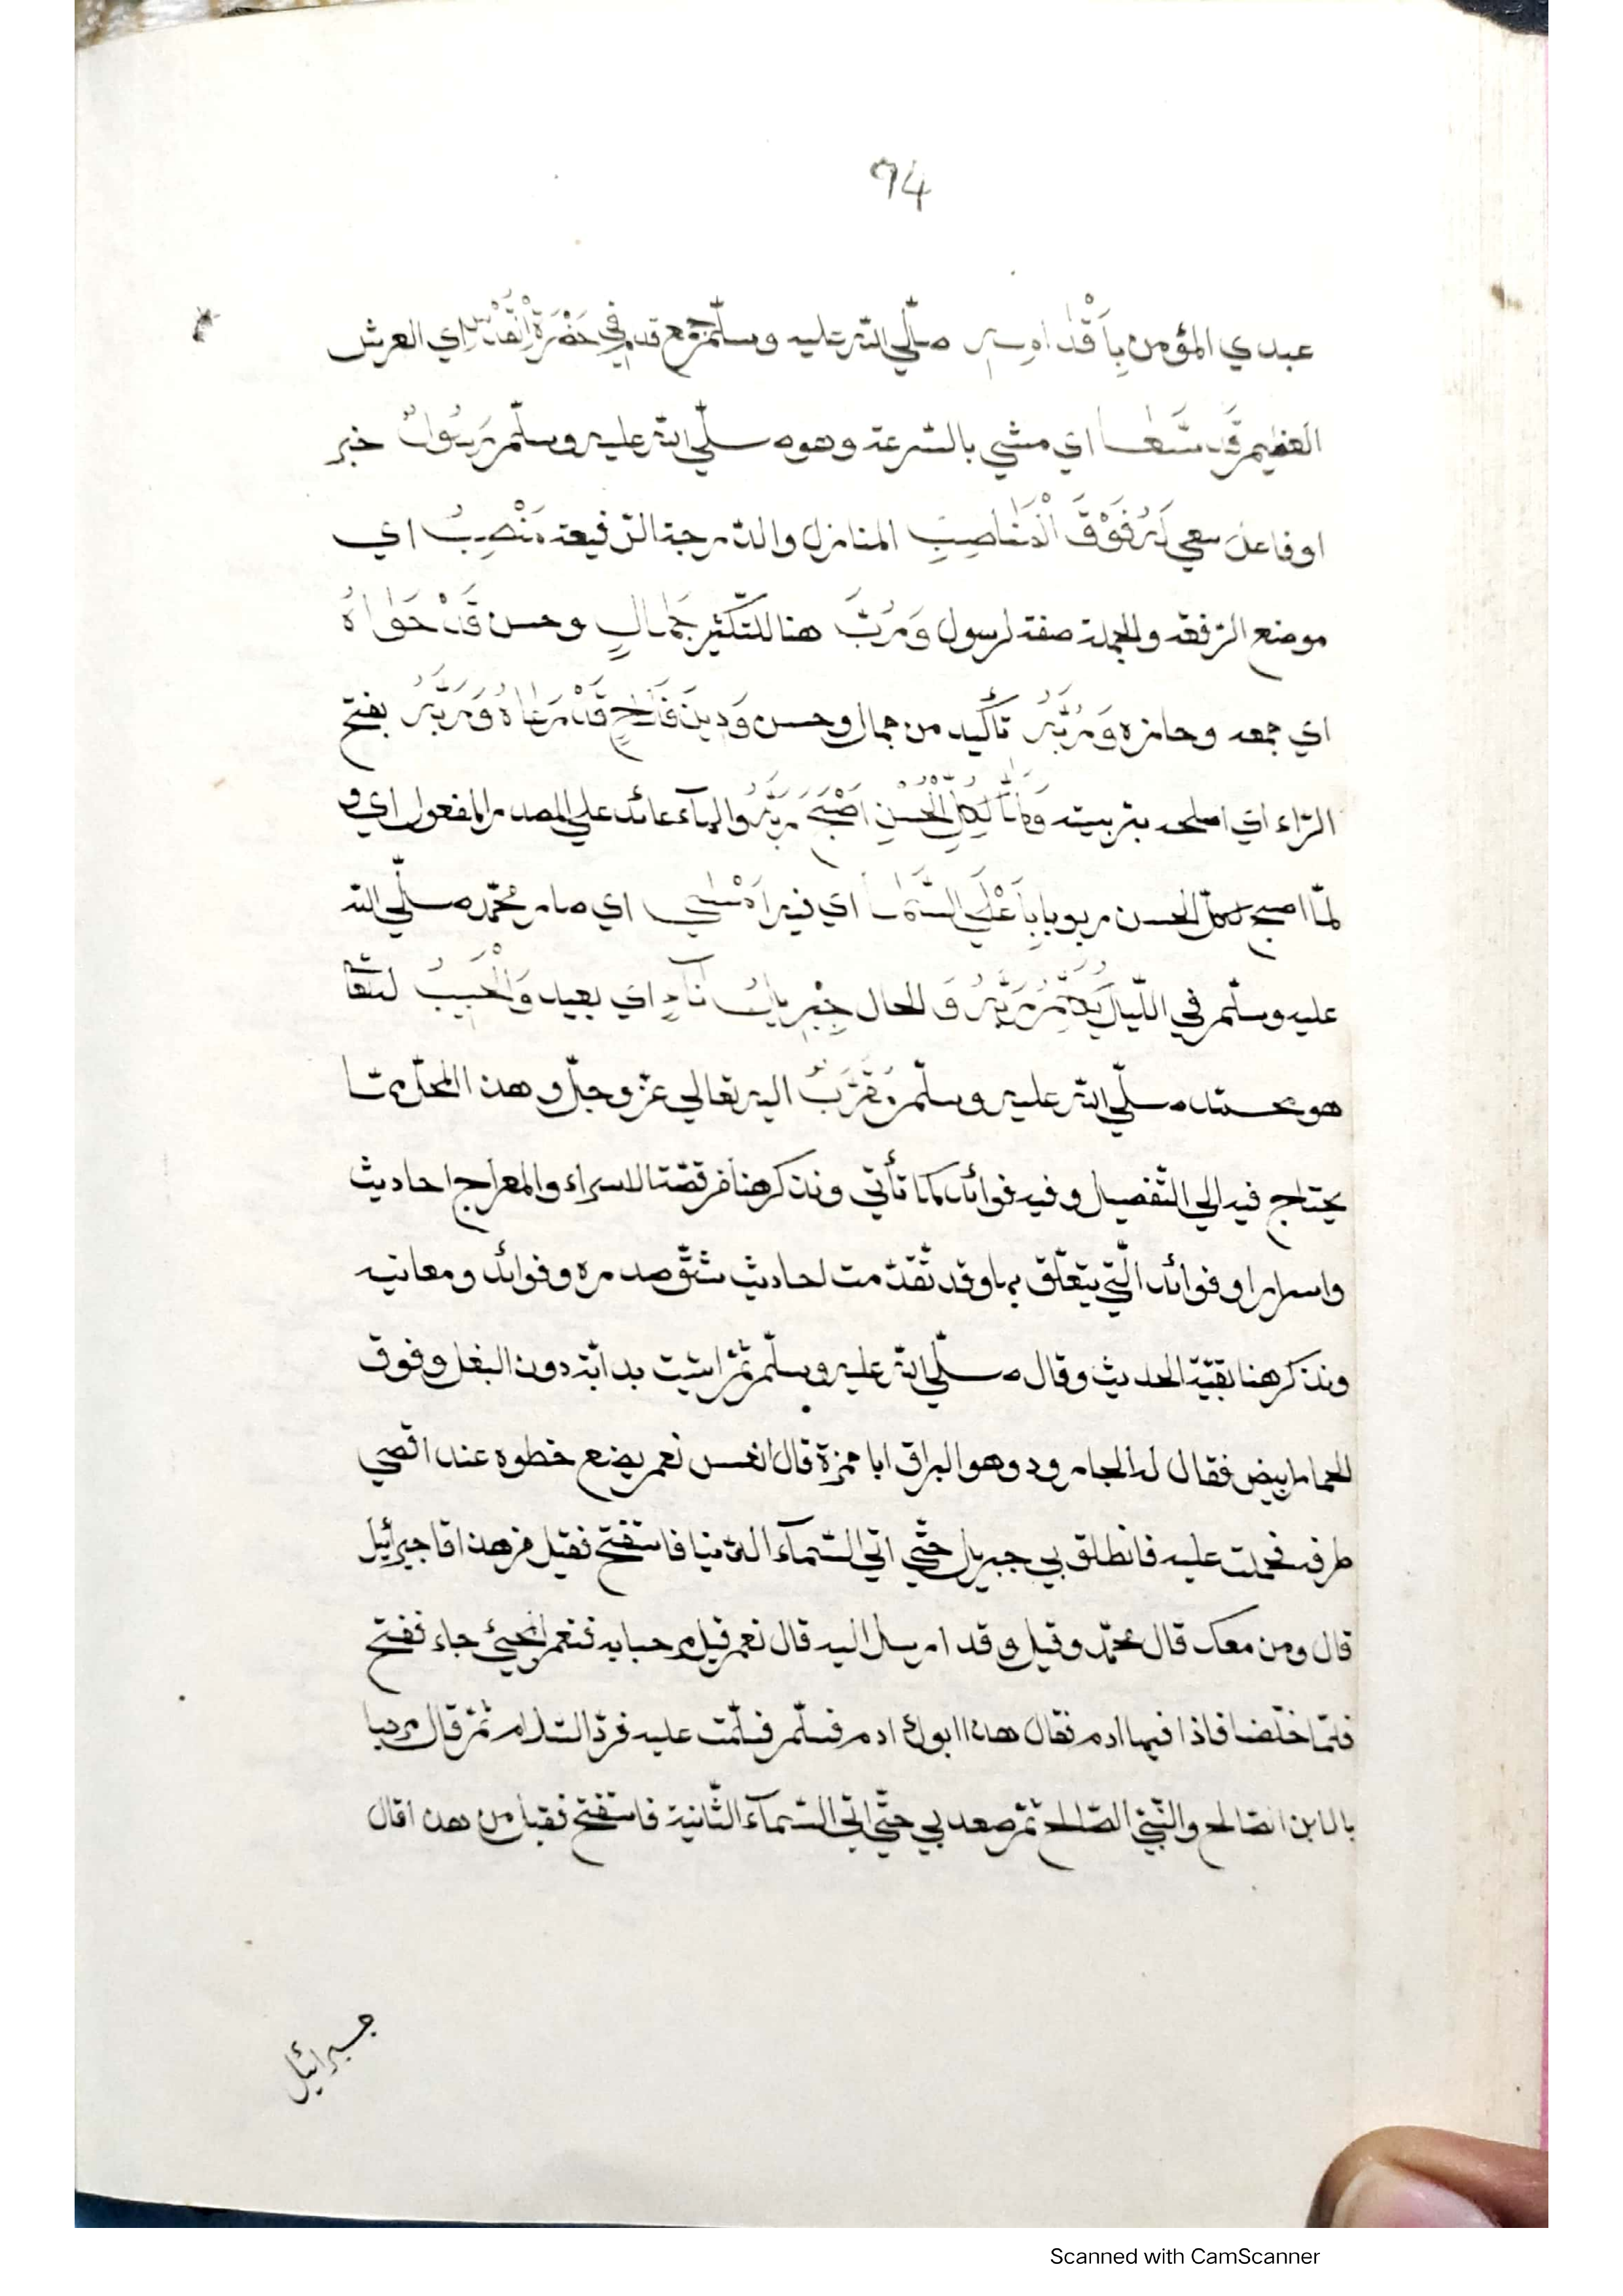 94
عبدي المؤمن بِأَقْدَامِهِ صلّي الله عليه وسلّم جمع قدم فِي حَضْرَةِ الْقُدْسِ اي العرش
العظيم قَد سَّعَا اي مشي بالسّرعة وهو صلّي الله عليه وسلّم رَسُولٌ خبر
اوفاعل سعي لَهُ فَوْقَ الْمَنَاصِبِ المنازل والدّرجة الرّفيعة مَنْصِبُ اي
موضع الرّفعة والجملة صفة لرسول وَرُبَّ هنا للتّكثير جَمَالٍ وحسن قَدْ حَوَاهُ
اي جمعه وحازه وَرُبَّهُ تأكيد من جمال وحسن وَدِينَ فَلَاحٍ قَدْ رَعَاهُ وَرَبَّهُ بفتح
الرّاء اي اصلحه بتربيته وَلَمَّا لِكُلِّ الْحُسْنِ اَصْبَحَ رَبَّهُ والهآء عائد علي المصدر المفعول اي و
لمّا اصبح لكلّ الحسن مربوبا بِاَعْلَي السَّمَا اي فيه اَمْسَي اي صار محمّد صلّي الله
عليه وسلّم في اللّيل يُكَلِّمُ رَبَّهُ وَ الحال جِبْرِيلُ نَاءٍ اي بعيد وَالْحَبِيبُ
هو محمّد صلّي الله عليه وسلّم مُقَرَّبُ اليه تعالي عزّ وجلّ و هذا المحلّ ممّا
يحتاج فيه الي التّفصيل و فيه فوائد كما تأتي ونذكر هنا من قصّة الاسراء والمعراج احاديث
واسرارا و فوائد الّتي يتعلّق بها وقد تقدّمت احاديث شقّ صدره و فوائد ومعانيه
ونذكر هنا بقيّة الحديث وقال صلّي الله عليه وسلّم ثمّ اتيت بدابّة دون البغل و فوق
الحمار ابيض فقال له الجارود وهو البراق ابا حمزة قال انس نعم يضع خطوه عند اقصي
طرفه فحملت عليه فانطلق بي جبريل حتّي اتي السّمآء الدّنيا فاستفتح فقيل من هذا قا جبرائيل
قال ومن معك قال محمّد وقيل وقد ارسل اليه قال نعم قيل مرحبا به فنعم المجيئ جاء ففتح
فلمّا خلصا فاذا فيها ادم فقال هذا ابوك ادم فسلّم فسلّمت عليه فردّ السّلام ثمّ قال مرحبا
بالابن الصّالح والنّبيّ الصّالح ثمّ صعد بي حتّي اتي السّمآء الثّانية فاستفتح فقيل من هذا قال
جبرائيل
Scanned with CamScanner